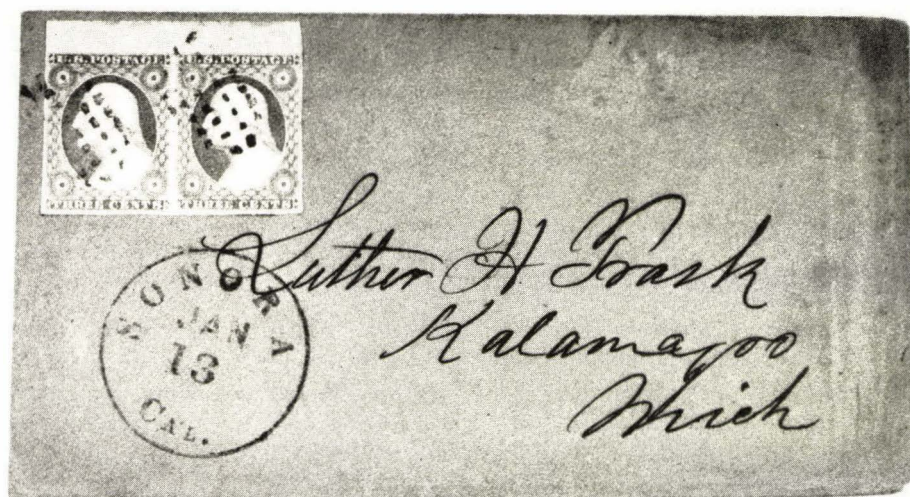 U.S. POSTAGE U.S. POSTAGE
THREE CENTS THREE CENTS
SONORA
JAN
13
CAL.
Luther H Trask
Kalamazoo
Mich